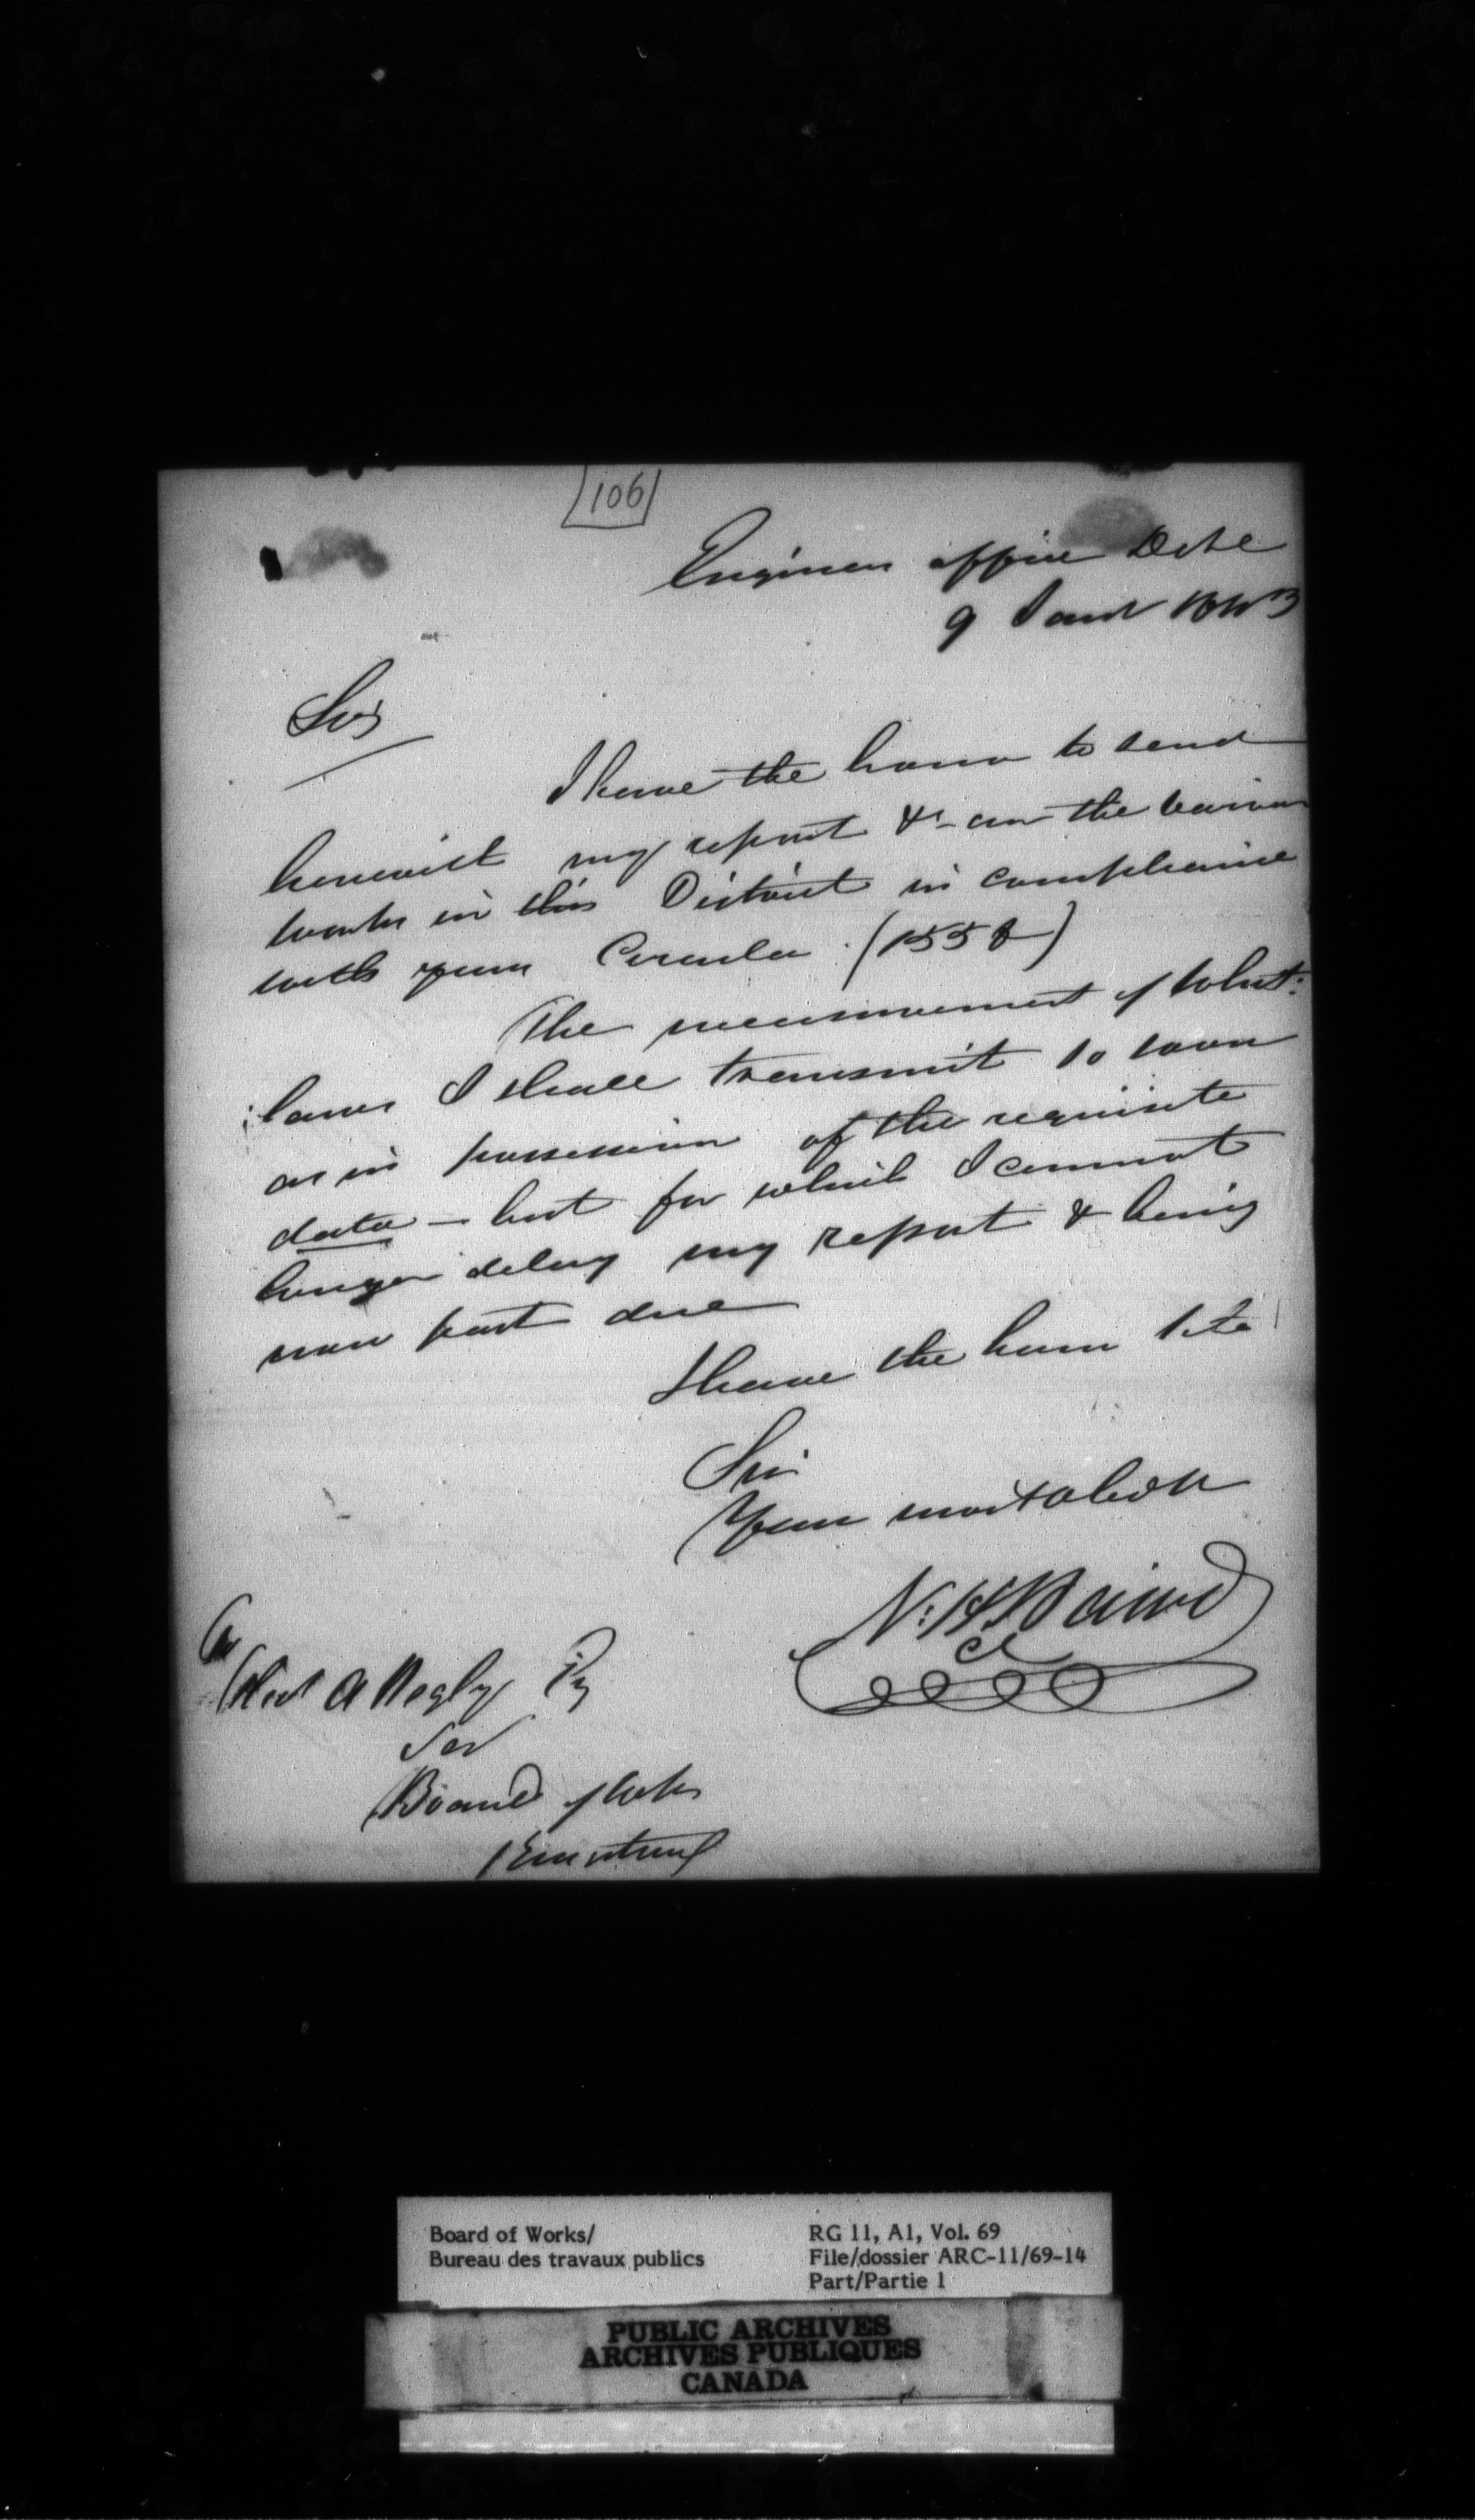 106
Engineer office
9 Jany 1843
Sir
I have the honor to send
herewith my report &c on the various
works in this District in compliance
with your Circular (1558)
The measurement of What:
:lanes I shall transmit so soon
as in possession of the requisite
data — but for which I cannot
longer delay my report & being
now past due
I have the honor
Sir
Your most obedt
N: H Baird
CE
Begly
Sec
Board of Works
Kingston
Board of Works/
Bureau des travaux publics
RG 11, A1, Vol. 69
File/dossier ARC-11/69-14
Part/Partie 1
PUBLIC ARCHIVES
ARCHIVES PUBLIQUES
CANADA